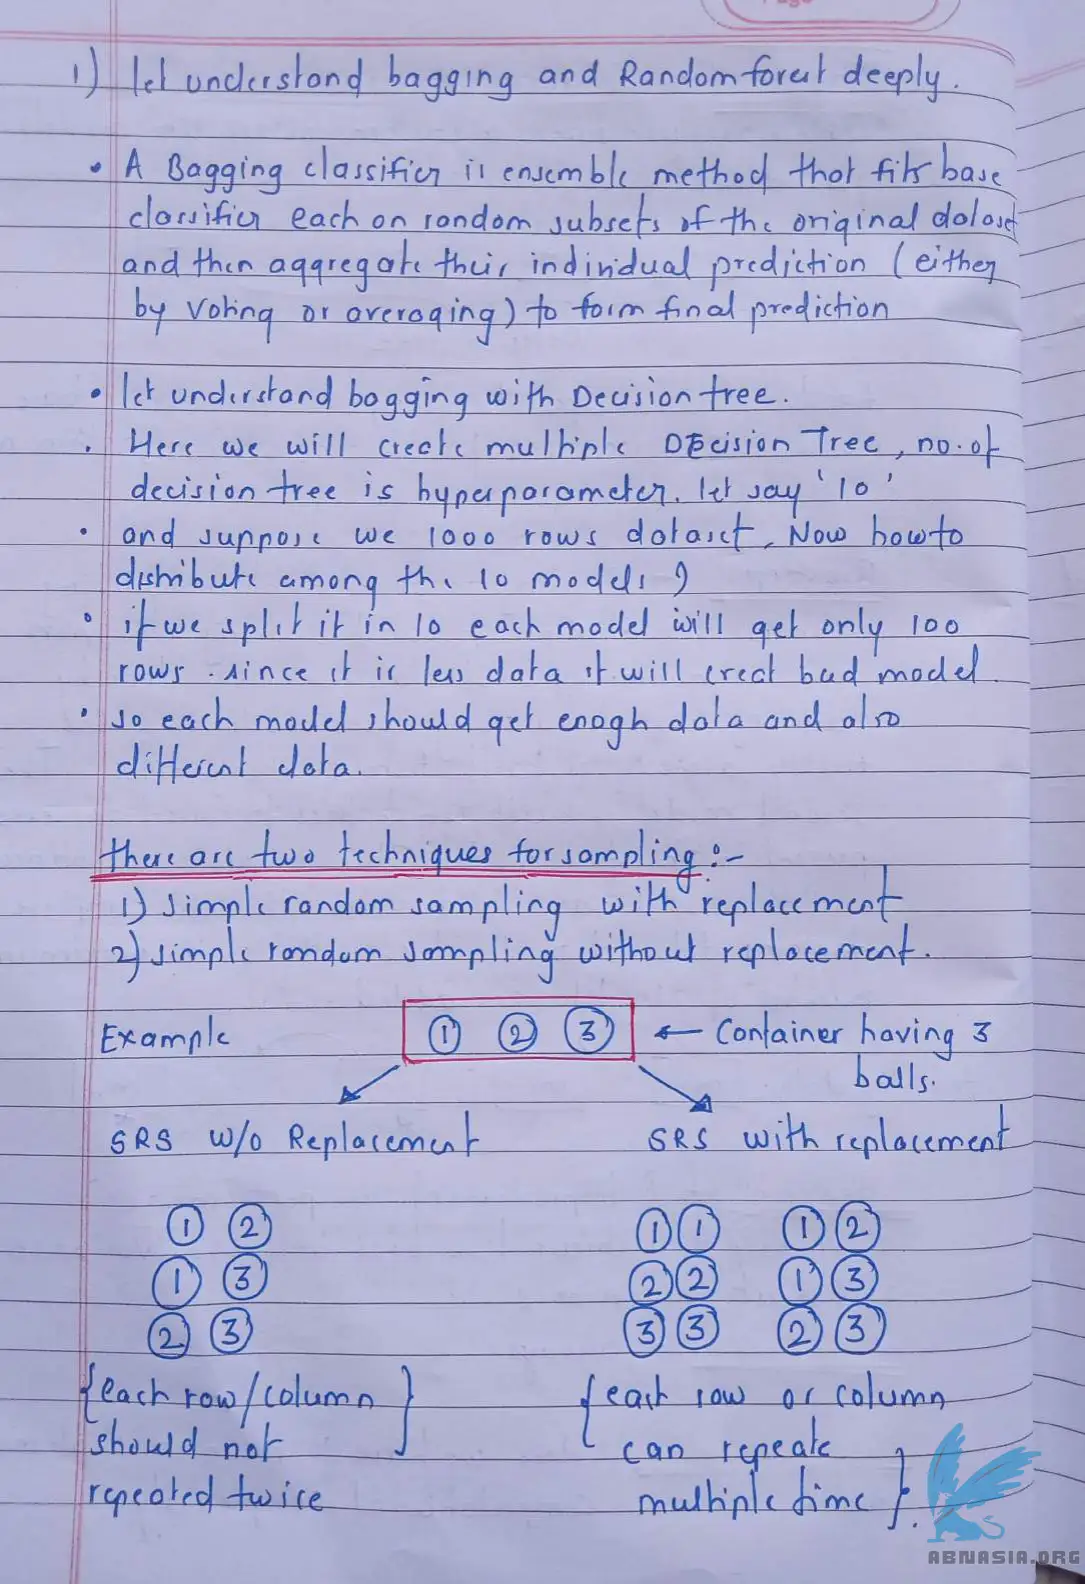 1) let understand bagging and Random forest deeply.
• A Bagging classifier is ensemble method that fits base
classifier each on random subsets of the original dataset
and then aggregate their individual prediction (either
by voting or averaging) to form final prediction
• let understand bagging with Decision tree.
• Here we will create multiple Decision Tree, no. of
decision tree is hyperparameter. let say '10'
• and suppose we 1000 rows dataset. Now how to
distribute among the 10 models ?
• if we split it in 10 each model will get only 100
rows. since it is less data it will creat bad model.
• so each model should get enogh data and also
different data.
there are two techniques for sampling :-
1) simple random sampling with replacement
2) simple random sampling without replacement.
Example ① ② ③ ← Container having 3
balls.
SRS w/o Replacement SRS with replacement
① ② ① ① ① ②
① ③ ② ② ① ③
② ③ ③ ③ ② ③
{each row/column } {each row or column
should not can repeate
repeated twice multiple time }.
ABNASIA.ORG